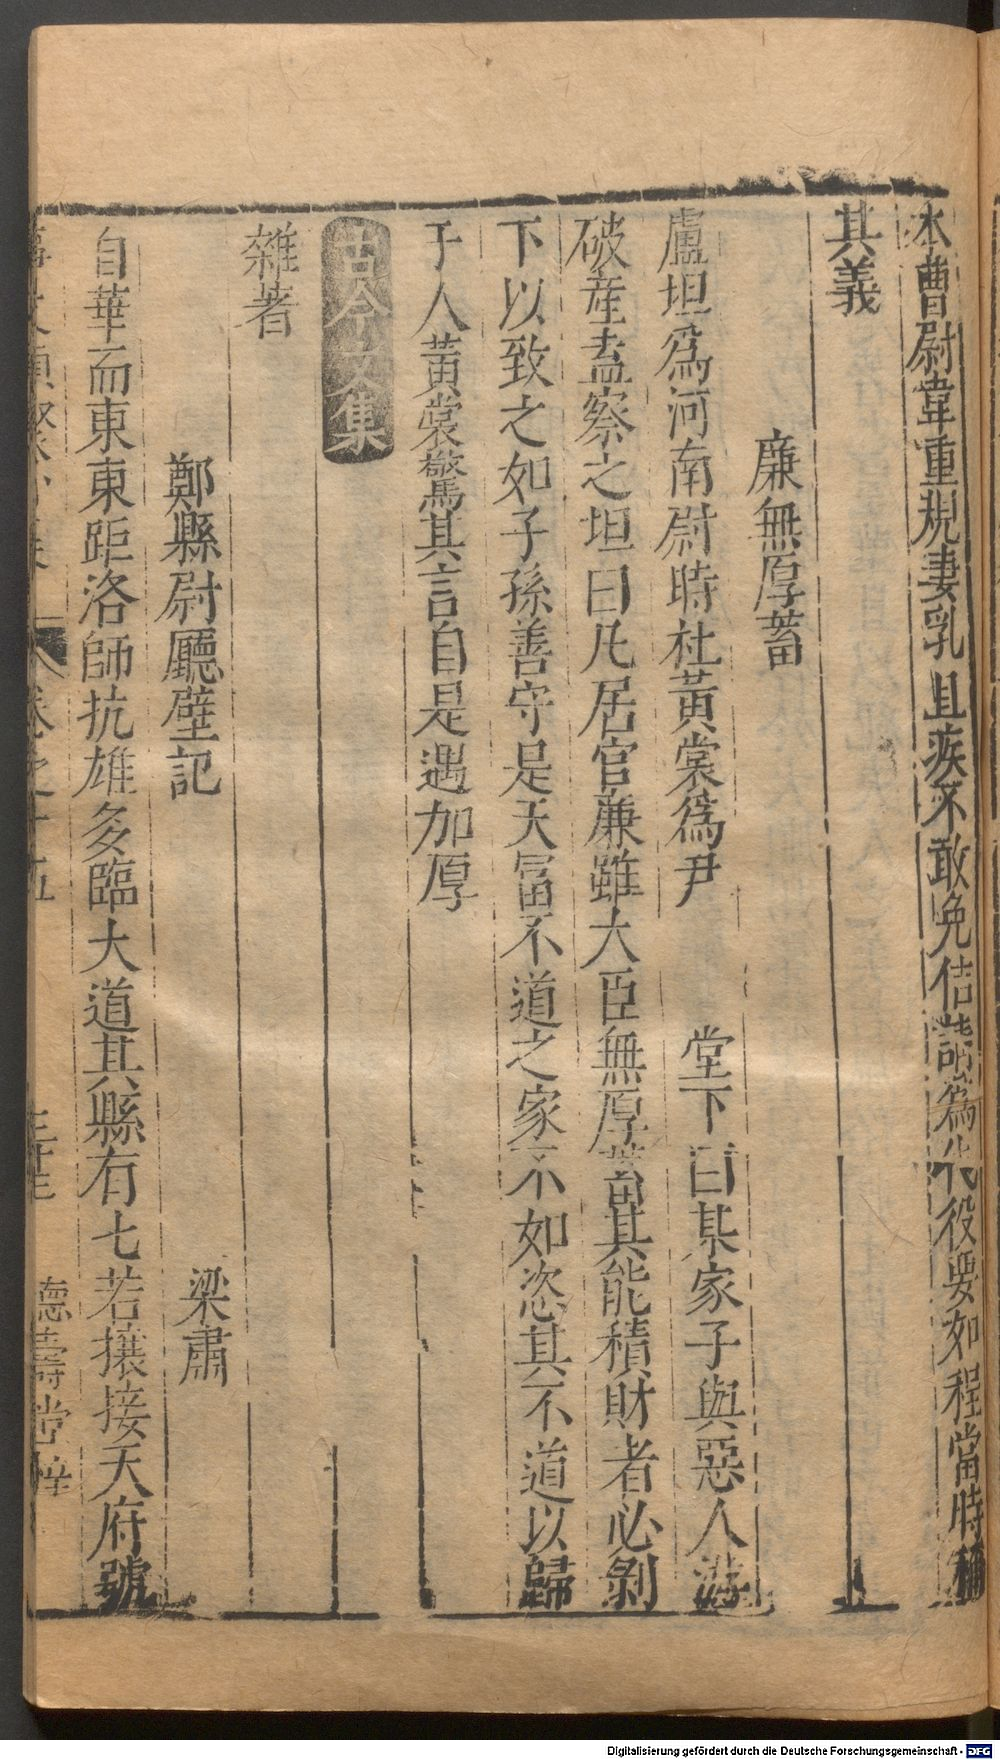 本曹尉韋重規妻乳且疾不敢免佶請爲代役要如程當時稱
其義
廉無厚蓄
盧坦爲河南尉時杜黃裳爲尹 堂下曰某家子與惡人游
破産盍察之坦曰凡居官廉雖大臣無厚蓄其能積財者必剝
下以致之如子孫善守是天富不道之家不如恣其不道以歸
于人黃裳驚其言自是遇加厚
古今文集
雜著
鄭縣尉廳壁記 梁肅
自華而東東距洛師抗雄多臨大道其縣有七若攘接天府號
卷之十五
德壽堂梓
Digitalisierung gefördert durch die Deutsche Forschungsgemeinschaft - DFG